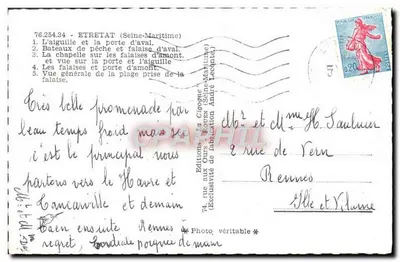 76.254.24 - ETRETAT (Seine-Maritime)
1. L'aiguille et la porte d'aval.
2. Bateaux de pêche et falaise d'aval.
3. La chapelle sur les falaises d'amont,
et vue sur la porte et l'aiguille
4. Les falaises et porte d'amont.
5. Vue générale de la plage prise de la
falaise.
Très belle promenade par
beau temps froid mais
c'est le principal nous
partons vers le Havre et
Tancarville et demain
Caen ensuite Rennes à
regret, Cordiale poignée de main
Editions "La Cigogne"
74, rue aux Ours - Rouen (Seine-Maritime)
(Exclusivité de fabrication André Leconte)
* Photo, véritable *
0,20
Mr et Mme H. Saulnier
2 rue de Vern
Rennes
Ille et Vilaine